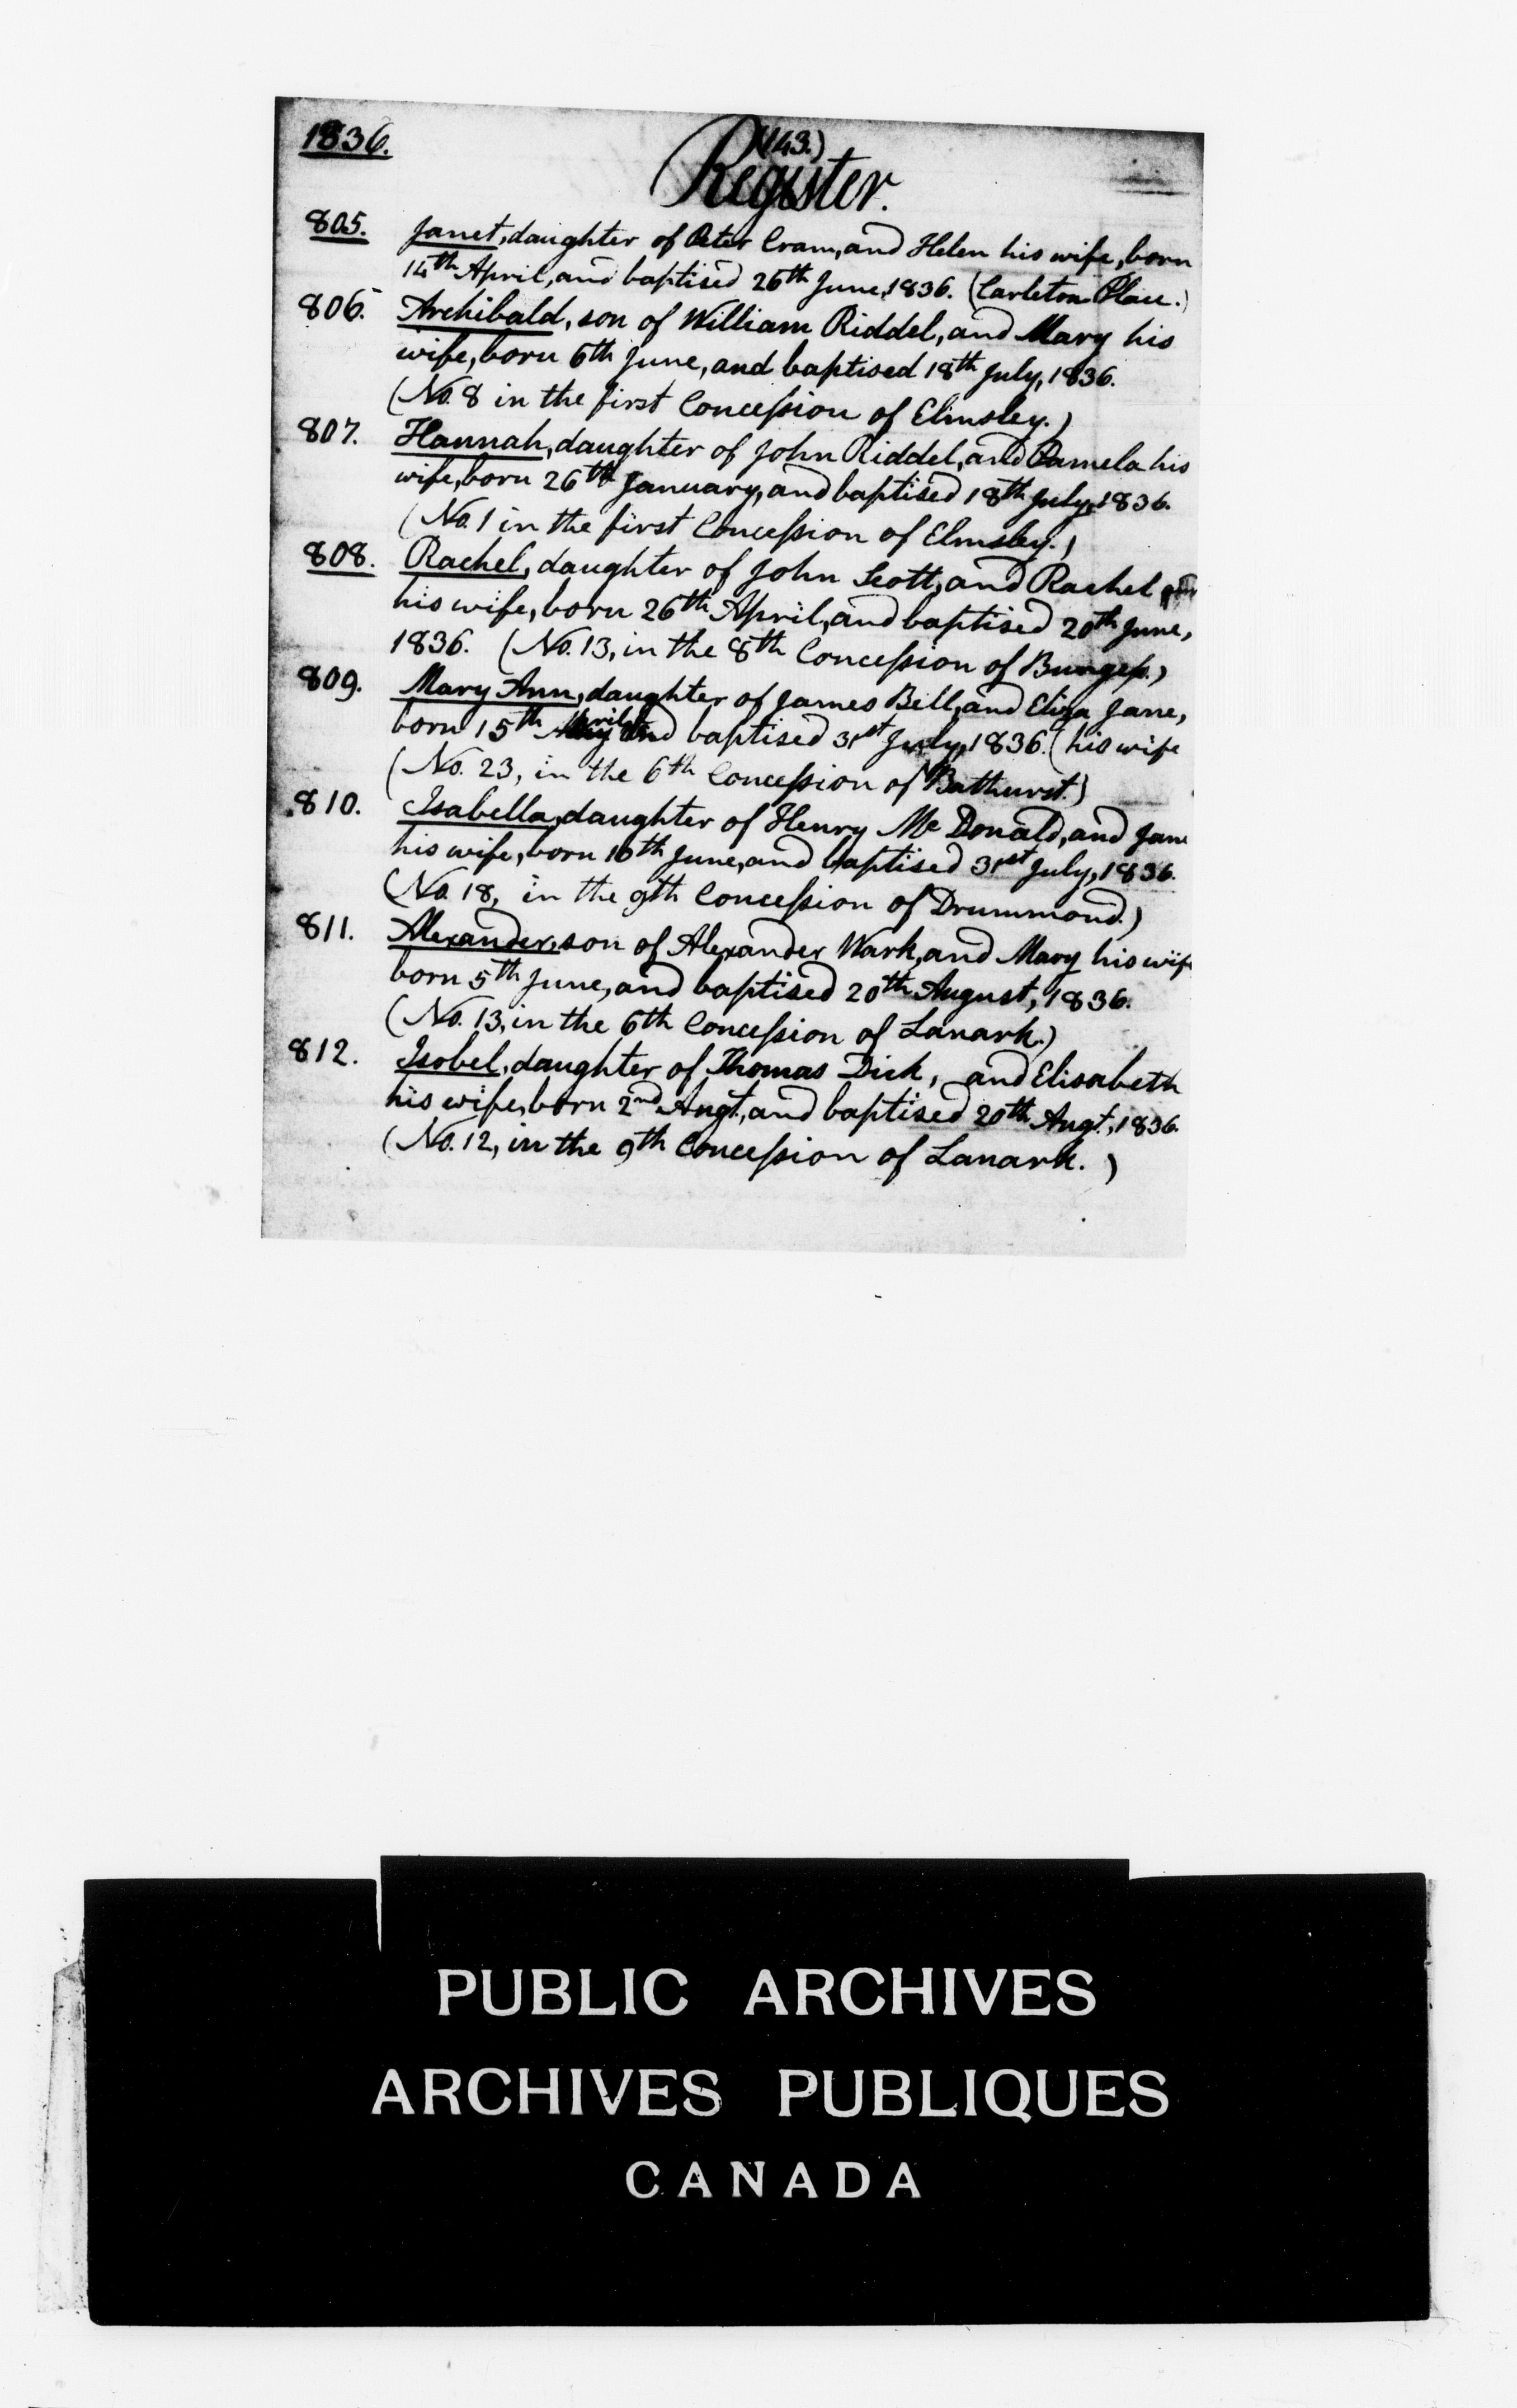 1836.
(143.)
Register.
805. Janet, daughter of Peter Cram, and Helen his wife, born
14th April, and baptised 26th June, 1836. (Carleton Place.)
806. Archibald, son of William Riddel, and Mary his
wife, born 6th June, and baptised 18th July, 1836.
(No. 8 in the first Concession of Elmsley.)
807. Hannah, daughter of John Riddel, and Pamela his
wife, born 26th January, and baptised 18th July, 1836.
(No. 1 in the first Concession of Elmsley.)
808. Rachel, daughter of John Scott, and Rachel
his wife, born 26th April, and baptised 20th June,
1836. (No. 13, in the 8th Concession of Burgess.)
809. Mary Ann, daughter of James Bell, and Eliza Jane,
born 15th April and baptised 31st July, 1836. (his wife
(No. 23, in the 6th Concession of Bathurst.)
810. Isabella, daughter of Henry Mc Donald, and Jane
his wife, born 10th June, and baptised 31st July, 1836.
(No. 18, in the 9th Concession of Drummond.)
811. Alexander, son of Alexander Wark, and Mary his wife
born 5th June, and baptised 20th August, 1836.
(No. 13, in the 6th Concession of Lanark.)
812. Isobel, daughter of Thomas Dick, and Elisabeth
his wife, born 2nd Augt., and baptised 20th Augt., 1836.
(No. 12, in the 9th Concession of Lanark.)
PUBLIC ARCHIVES
ARCHIVES PUBLIQUES
CANADA